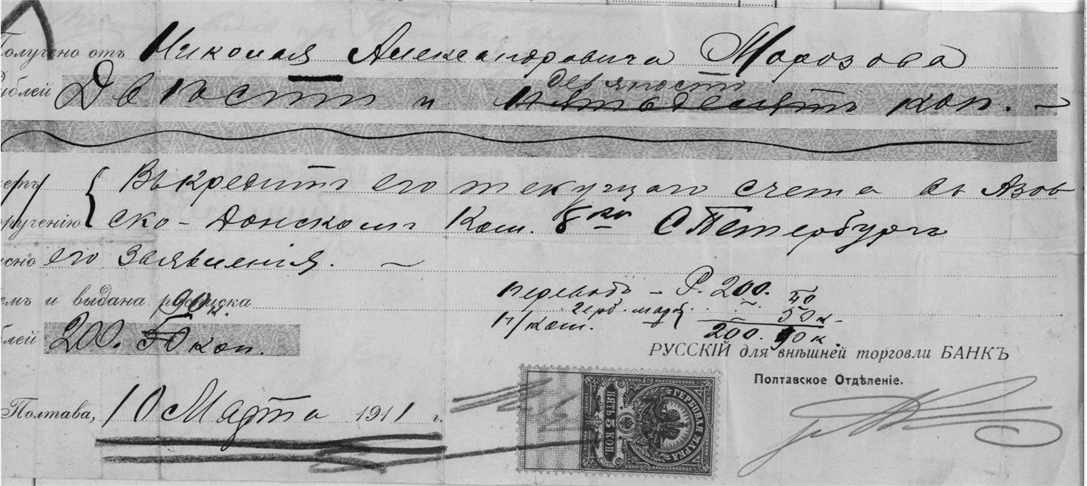 Получено отъ Николая Александровича Морозова
рублей Двѣсти и девяносто
пятьдесятъ коп. —
Въ кредитъ его текущаго счета въ Азов
ско-Донскомъ Ком. Б-кѣ СПетербургъ
его заявленія. —
и выдана росписка
90 к.
200. 50 коп.
переводъ — Р. 200. 40
н/ком. герб. марк. 50 к.
200. 90 к.
РУССКІЙ для внѣшней торговли БАНКЪ
Полтавское Отдѣленіе.
Полтава, 10 Марта 1911 г.
ГЕРБОВАЯ МАРКА
ПЯТЬ 5 КОП